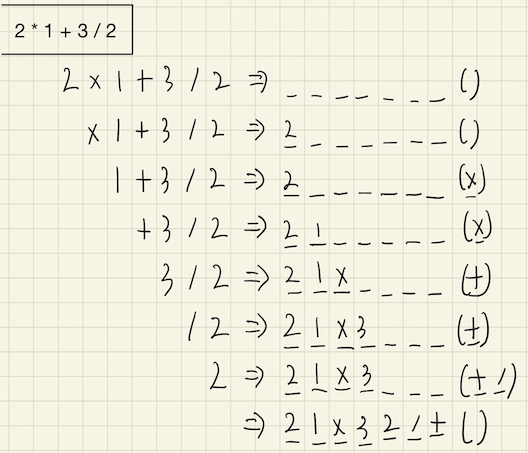 2 * 1 + 3 / 2
2 × 1 + 3 / 2 ⇒ _ _ _ _ _ _ _ ()
× 1 + 3 / 2 ⇒ 2 _ _ _ _ _ _ ()
1 + 3 / 2 ⇒ 2 _ _ _ _ _ _ (×)
+ 3 / 2 ⇒ 2 1 _ _ _ _ _ (×)
3 / 2 ⇒ 2 1 × _ _ _ _ (+)
/ 2 ⇒ 2 1 × 3 _ _ _ (+)
2 ⇒ 2 1 × 3 _ _ _ (+ /)
⇒ 2 1 × 3 2 / + ()